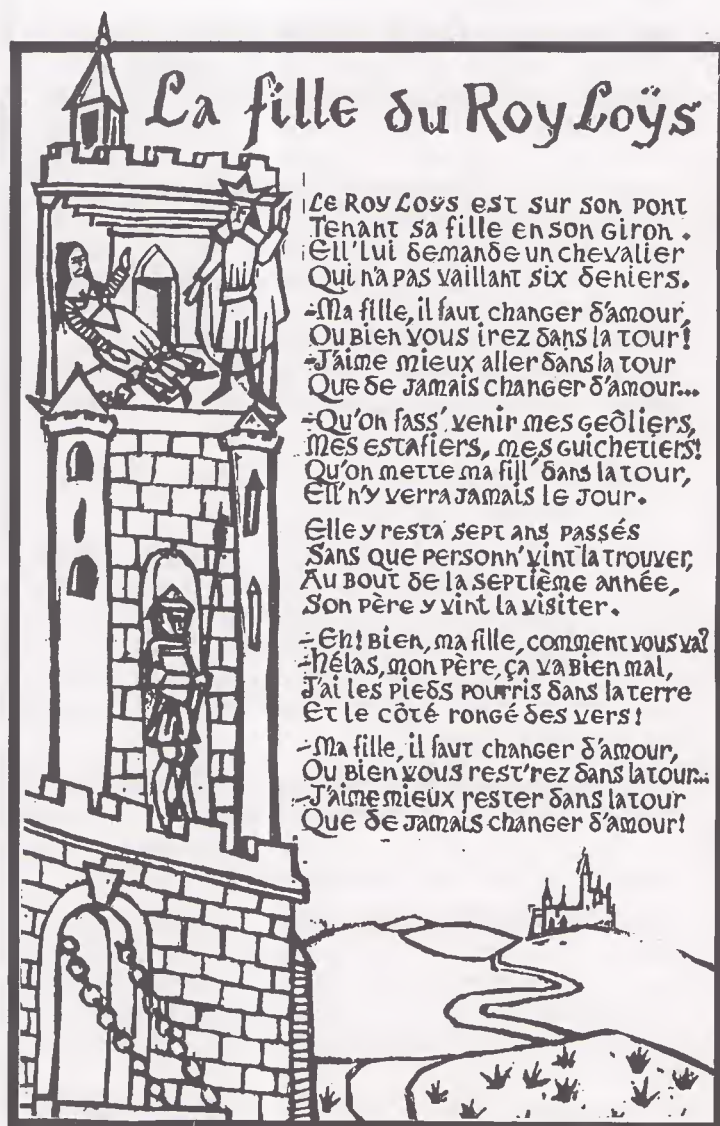 La fille du Roy Loÿs
Le Roy Loÿs est sur son pont
Tenant sa fille en son giron.
Ell' lui demande un chevalier
Qui n'a pas vaillant six deniers.
-Ma fille, il faut changer d'amour,
Ou bien vous irez dans la tour!
-J'aime mieux aller dans la tour
Que de jamais changer d'amour...
-Qu'on fass' venir mes geôliers,
Mes estafiers, mes guichetiers!
Qu'on mette ma fill' dans la tour,
Ell' n'y verra jamais le jour.
Elle y resta sept ans passés
Sans que personn' vint la trouver,
Au bout de la septième année,
Son père y vint la visiter.
-Eh! Bien, ma fille, comment vous va?
-Hélas, mon père, ça va bien mal,
J'ai les pieds pourris dans la terre
Et le côté rongé des vers!
-Ma fille, il faut changer d'amour,
Ou bien vous rest'rez dans la tour...
-J'aime mieux rester dans la tour
Que de jamais changer d'amour!